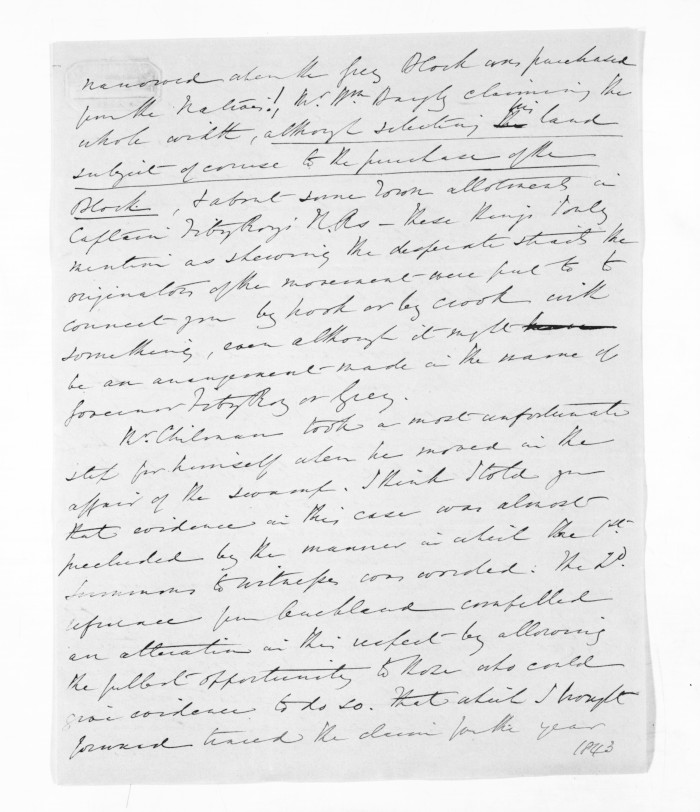 narrowed when the Grey Block was purchased
from the Natives!, Mr. Wm Bayly claiming the
whole width, although selecting his land
subject of course to the purchase of the
Block, & about some Town allotments in
Captain FitzRoy's N.Rs — these things I only
mention as shewing the desperate straits the
originators of the movement were put to to
connect you by hook or by crook with
something, even although it might
be an arrangement made in the name of
Governor FitzRoy or Grey.
Mr. Chilman took a most unfortunate
step for himself when he moved in the
affair of the swamp. I think I told you
that evidence in this case was almost
precluded by the manner in which the 1st.
Summons to witnesses was worded: The 2d.
reference from Auckland compelled
an alteration in this respect by allowing
the fullest opportunity to those who could
give evidence to do so. That which I brought
forward traced the claim for the year
1843